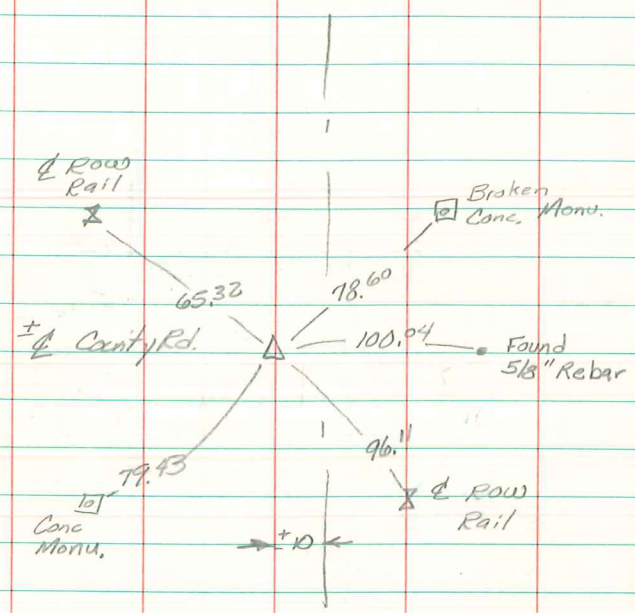 ℄ ROW
Rail
Broken
Conc. Monu.
65.32
78.60
± ℄ County Rd.
100.04
Found
5/8" Rebar
79.43
96.11
Conc
Monu.
℄ ROW
Rail
±10